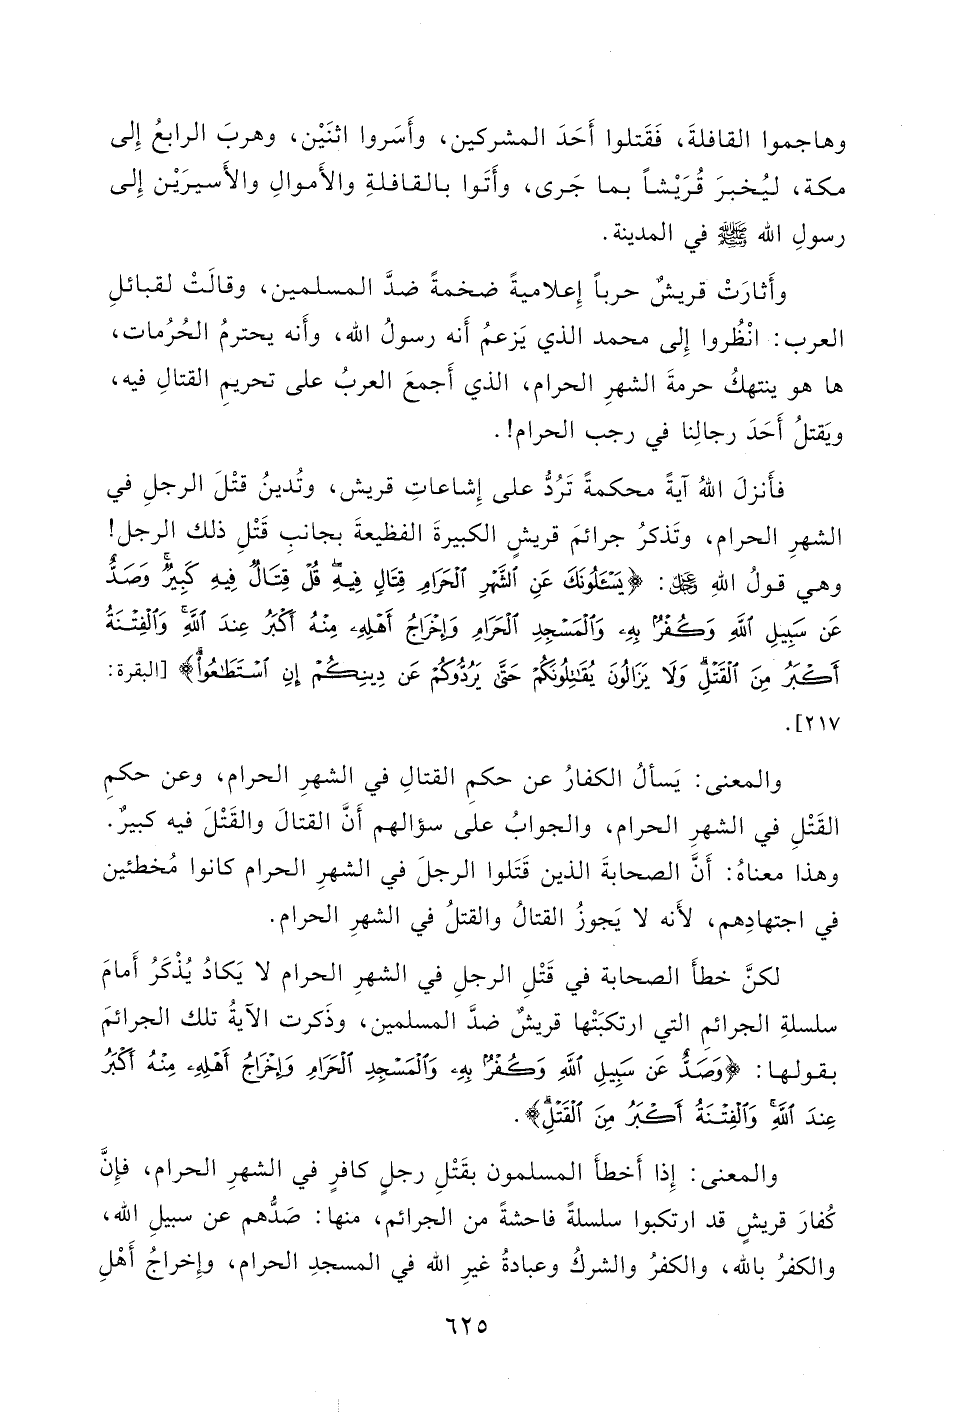 وهاجموا القافلةَ، فَقَتلوا أَحَدَ المشركين، وأَسَروا اثنَيْن، وهربَ الرابعُ إِلى
مكة، ليُخبرَ قُرَيْشاً بما جَرى، وأَتَوا بالقافلةِ والأَموالِ والأَسيرَيْن إِلى
رسولِ الله ﷺ في المدينة.
وأَثارَتْ قريشٌ حرباً إِعلاميةً ضخمةً ضدَّ المسلمين، وقالَتْ لقبائلِ
العرب: انْظُروا إِلى محمد الذي يَزعمُ أَنه رسولُ الله، وأَنه يحترمُ الحُرُمات،
ها هو ينتهكُ حرمةَ الشهرِ الحرام، الذي أَجمعَ العربُ على تحريمِ القتالِ فيه،
ويَقتلُ أَحَدَ رجالِنا في رجب الحرام!.
فأَنزلَ اللهُ آيةً محكمةً تَرُدُّ على إِشاعاتِ قريش، وتُدينُ قتْلَ الرجلِ في
الشهرِ الحرام، وتَذكرُ جرائمَ قريشٍ الكبيرةَ الفظيعةَ بجانبِ قَتْلِ ذلك الرجل!
وهي قولُ اللهِ ﷻ: ﴿يَسْـَٔلُونَكَ عَنِ ٱلشَّهْرِ ٱلْحَرَامِ قِتَالٍ فِيهِۖ قُلْ قِتَالٌ فِيهِ كَبِيرٌۚ وَصَدٌّ
عَن سَبِيلِ ٱللَّهِ وَكُفْرٌۢ بِهِۦ وَٱلْمَسْجِدِ ٱلْحَرَامِ وَإِخْرَاجُ أَهْلِهِۦ مِنْهُ أَكْبَرُ عِندَ ٱللَّهِۚ وَٱلْفِتْنَةُ
أَكْبَرُ مِنَ ٱلْقَتْلِۗ وَلَا يَزَالُونَ يُقَٰتِلُونَكُمْ حَتَّىٰ يَرُدُّوكُمْ عَن دِينِكُمْ إِنِ ٱسْتَطَٰعُوا۟ۚ﴾ [البقرة:
٢١٧].
والمعنى: يَسأَلُ الكفارُ عن حكمِ القتالِ في الشهرِ الحرام، وعن حكمِ
القَتْلِ في الشهرِ الحرام، والجوابُ على سؤالهم أَنَّ القتالَ والقَتْلَ فيه كبيرٌ.
وهذا معناهُ: أَنَّ الصحابةَ الذين قَتَلوا الرجلَ في الشهرِ الحرام كانوا مُخطئين
في اجتهادِهم، لأَنه لا يَجوزُ القتالُ والقتلُ في الشهرِ الحرام.
لكنَّ خطأَ الصحابة في قَتْلِ الرجلِ في الشهرِ الحرام لا يَكادُ يُذْكَرُ أَمامَ
سلسلةِ الجرائمِ التي ارتكبَتْها قريشٌ ضدَّ المسلمين، وذَكرت الآيةُ تلك الجرائمَ
بقولها: ﴿وَصَدٌّ عَن سَبِيلِ ٱللَّهِ وَكُفْرٌۢ بِهِۦ وَٱلْمَسْجِدِ ٱلْحَرَامِ وَإِخْرَاجُ أَهْلِهِۦ مِنْهُ أَكْبَرُ
عِندَ ٱللَّهِۚ وَٱلْفِتْنَةُ أَكْبَرُ مِنَ ٱلْقَتْلِۗ﴾.
والمعنى: إِذا أَخطأَ المسلمون بقَتْلِ رجلٍ كافرٍ في الشهرِ الحرام، فإِنَّ
كُفارَ قريشٍ قد ارتكبوا سلسلةً فاحشةً من الجرائم، منها: صَدُّهم عن سبيلِ الله،
والكفرُ بالله، والكفرُ والشركُ وعبادةُ غيرِ الله في المسجدِ الحرام، وإِخراجُ أَهْلِ
٦٢٥